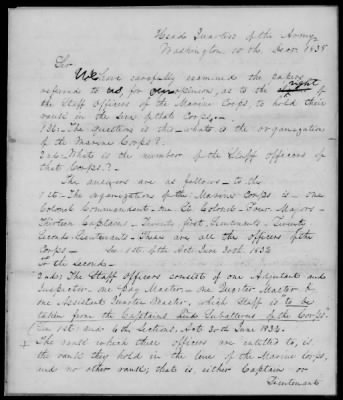 Head Quarters of the Army
Washington 10th Decr. 1838
Sir
We have carefully examined the papers
referred to us, for our opinion, as to the right of
the Staff Officers of the Marine Corps, to hold their
rank in the line of that Corps,—
1st—The question is this—what is the organization
of the Marine Corps?—
2nd—What is the number of the Staff officers of
that Corps?—
The answers are as follows—to the
1st—The organization of the Marine Corps is—one
Colonel Commandant—one Lt. Colonel—Four Majors—
Thirteen Captains—Twenty first Lieutenants—Twenty
Second Lieutenants—These are all the officers of the
Corps— Sec 1st of the Act June 30th 1834
To the Second—
2nd: The Staff Officers consist of one Adjutant and
Inspector—one Pay Master—one Quarter Master &
one Assistant Quarter Master, which Staff is to be
taken from the Captains and Subalterns of the Corps.
1st: and 6th Sections, Act 30th June 1834.
The rank which these officers are entitled to, is
the rank they hold in the line of the Marine Corps,
and no other rank; that is, either Captain or
Lieutenant